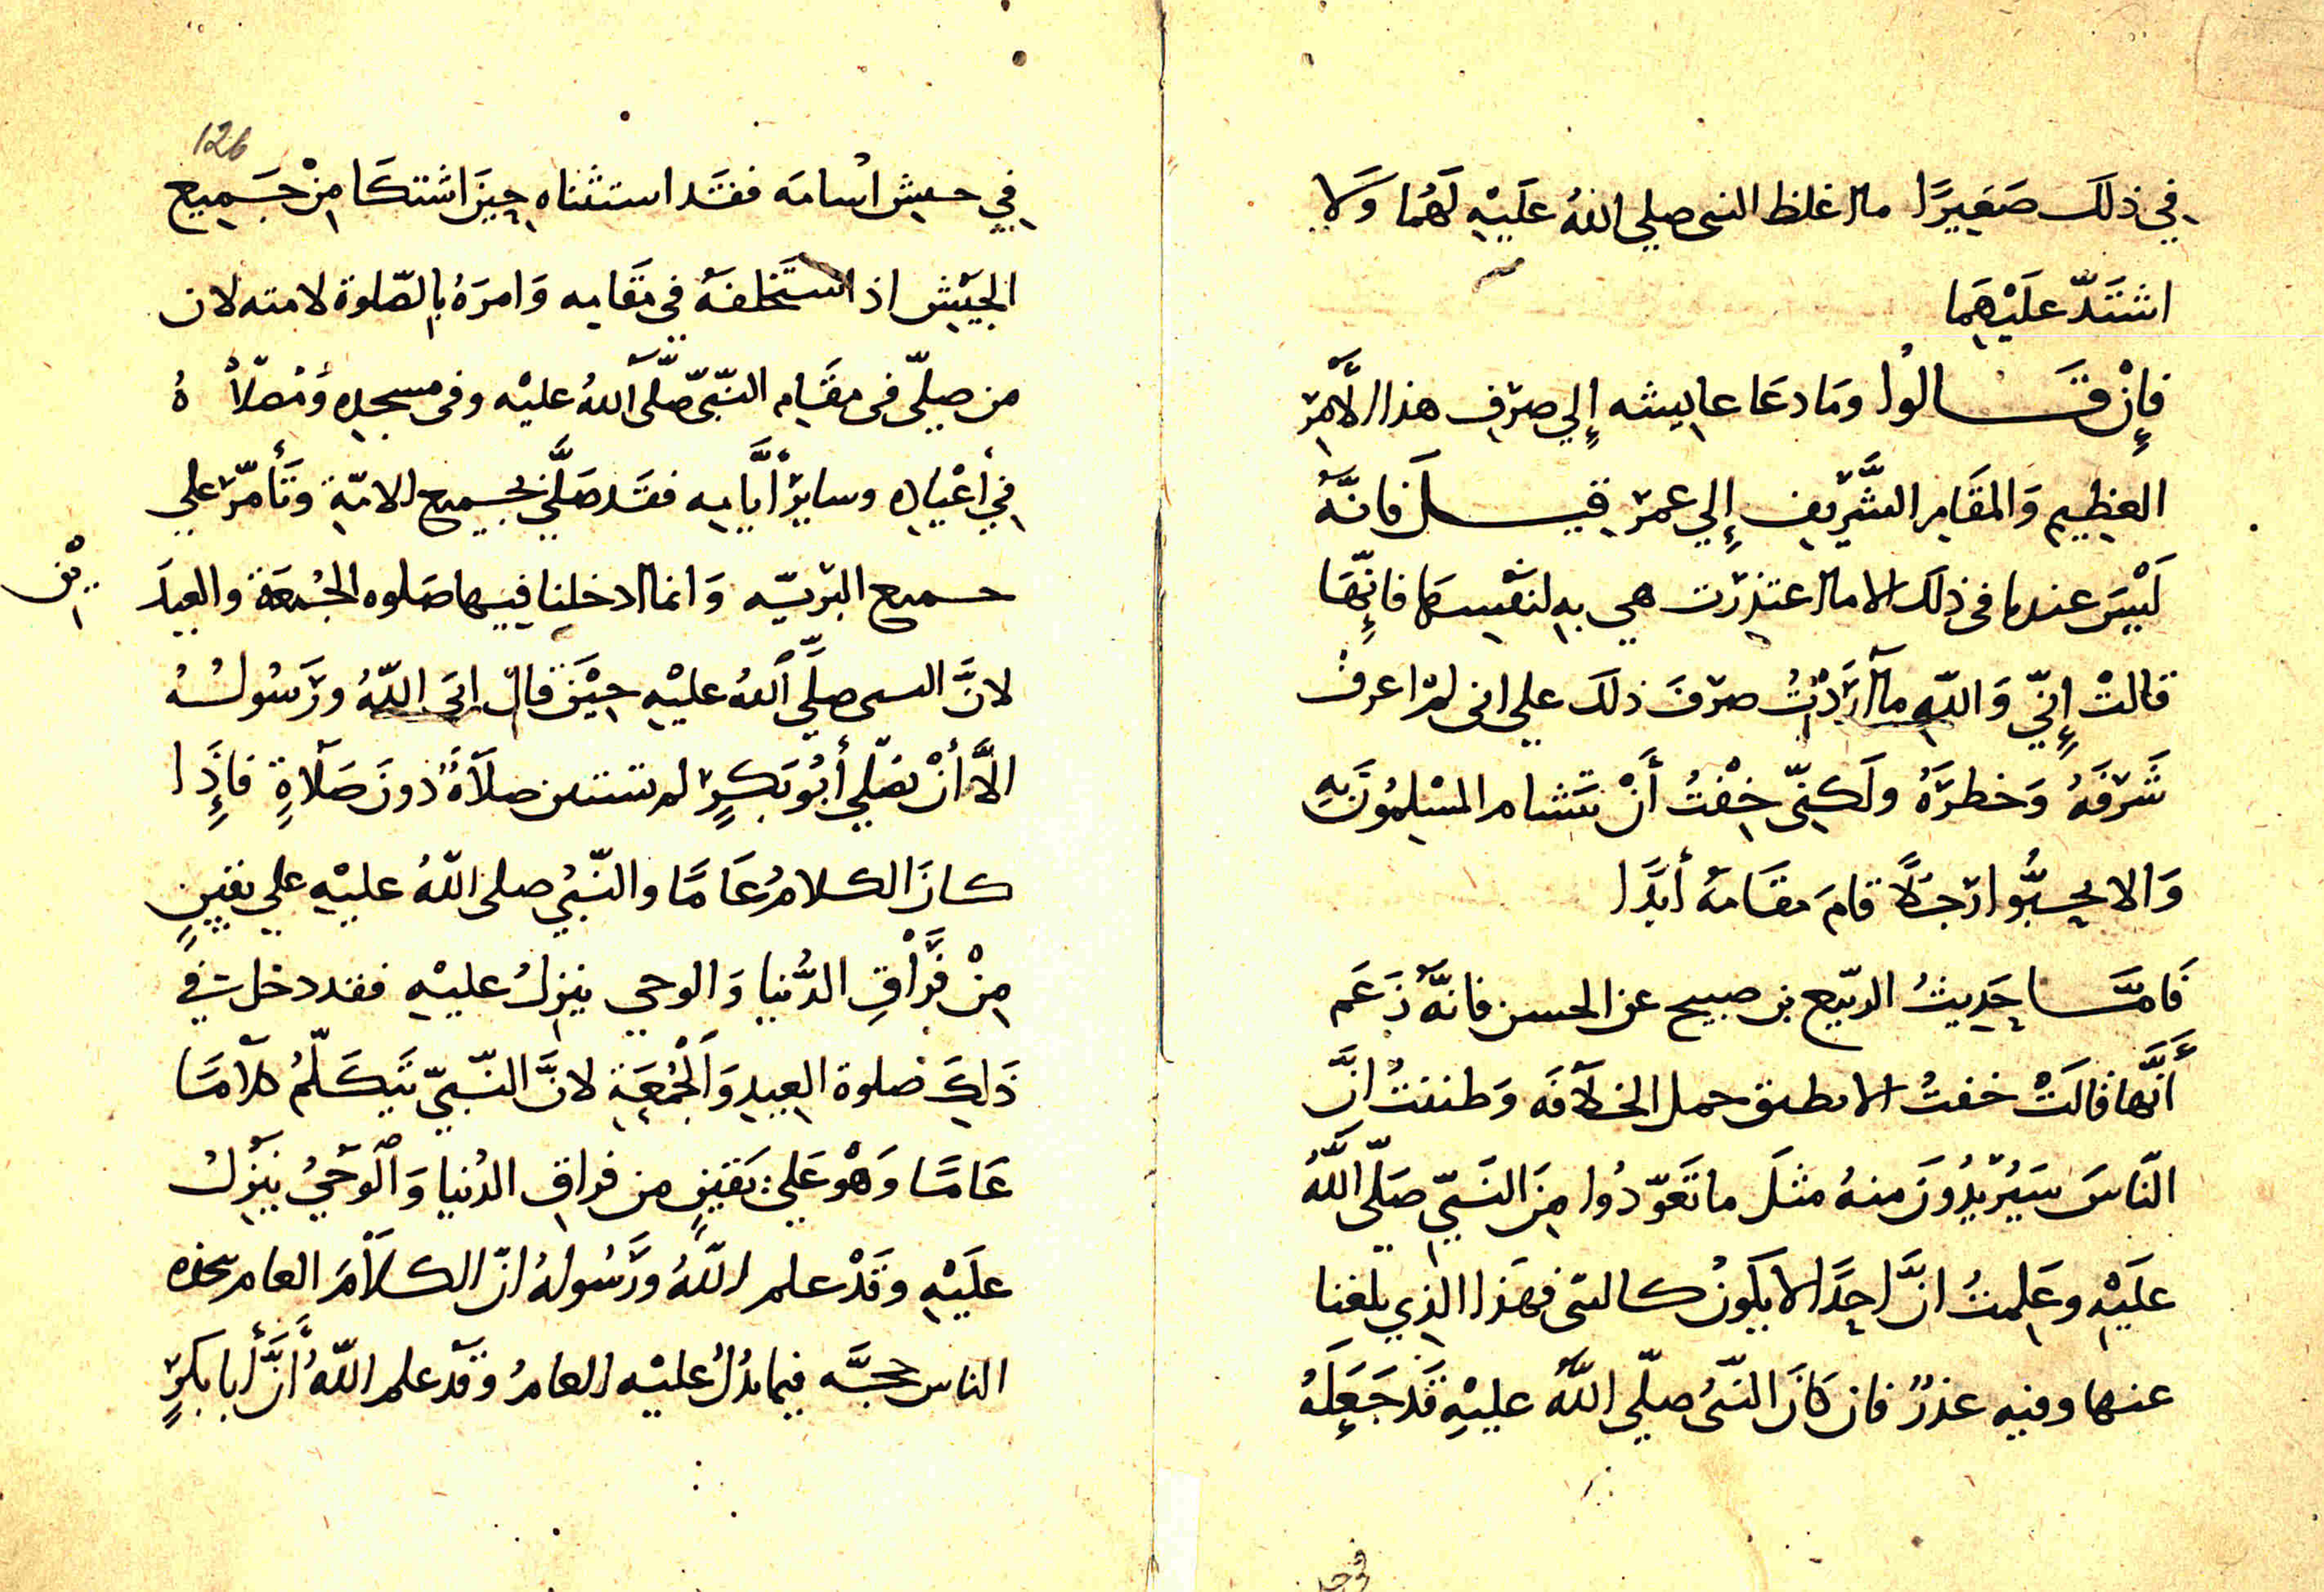 في ذلك صَغيرًا ما اغلظ النبي صلي اللهُ عَلَيْهِ لَهُما وَلا
اشتَدّ عَلَيْهِمَا
فإِنْ قَالُوا ومَا دعَا عايشه إِلي صرْفِ هذا الأَمْرِ
العظِيمِ وَالمقَامِ الشَّرِيفِ إِلي عمرَ قيلَ فانَّهُ
لَيْسَ عندنا في ذلكَ الا ما اعتذرت هي بِهِ لنَفْسِهَا فانِّهَا
قالتْ إِنّي وَاللهِ مآ ارَدْتُ صرْفَ ذلكَ علي اني لمْ اعرف
شَرَفَهُ وَخطرَهُ ولَكِنّي خِفْتُ أَنْ يتَشام المسْلِمُونَ بِهِ
وَالا يحِبُّوا رَجلًا قامَ مقَامَهُ أبَدًا
فَامَّا حَدِيثُ الربيع بن صبيح عن الحسن فانَّهُ زَعَم
أَنَّها قالَتْ خفتُ الا يطيق حمل الخلَافَه وَظننتُ انَّ
النّاسَ سَيُرِيدُونَ منهُ مثلَ ما تَعَوّدُوا مِنَ النَبيّ صَلّى اللَّهُ
علَيْهِ وعَلِمتُ انَّ احِدًا لا يكَونُ كالنبي فهَذا الذِي بلغنا
عنها وفيه عذرٌ فان كَانَ النّبيُ صلّي اللَّهُ عليْهِ قَد جَعَلَهُ
في جيش
126
في جيش اسامَه فقَد استثناه حِينَ اشتكَا مِنْ جَميع
الجَيْش اذ استَخلفَهُ في مَقَامِه وَامرَهُ بالصّلوة لامته لان
من صلّي في مقَامِ النّبيّ صّلّى اللهُ عليْه وفي مسجدِه وَمُصَلَّاهُ
في أعْيَادِه وسايرْ أيَّامِه فقَد صَلَّي بجميع الامّةِ وتَأمّرَ علي
جميع البَريّه وَانما ادخلنا فيها صَلوه الجُمعَة والعِيدَيْنِ
لانَّ النبي صلَّي اللهُ عليْهِ حِيْنَ قالَ ابَى اللّهُ ورَسُولُهُ
الَّا أَنْ يصَلّي أَبُو بَكرٍ لم يستثن صلَاةً دُونَ صَلَاةٍ فاذَا
كانَ الكلامُ عَامًا والنّبيُ صلى اللّهُ عليْهِ علي يقينٍ
مِنْ فَراقِ الدُّنيا وَالوحي ينزلُ عليْهِ فقد دخلت في
ذَلِكَ صَلوة العِيدِ وَالجُمُعَةِ لانَّ النّبيّ يتَكَلّمُ كلَامًا
عَامًا وَهْوَ عَلي يَقينٍ من فراقِ الدُنيا وَالوَحْيُ ينَزلُ
علَيْهِ وقَدْ علم اللّهُ ورَسُولهُ انّ الكلَامَ العام يتخذه
الناس حجّه فيما يدُلّ عليْه العامُ وقَدْ علم اللّهُ أنَّ أبا بكرٍ